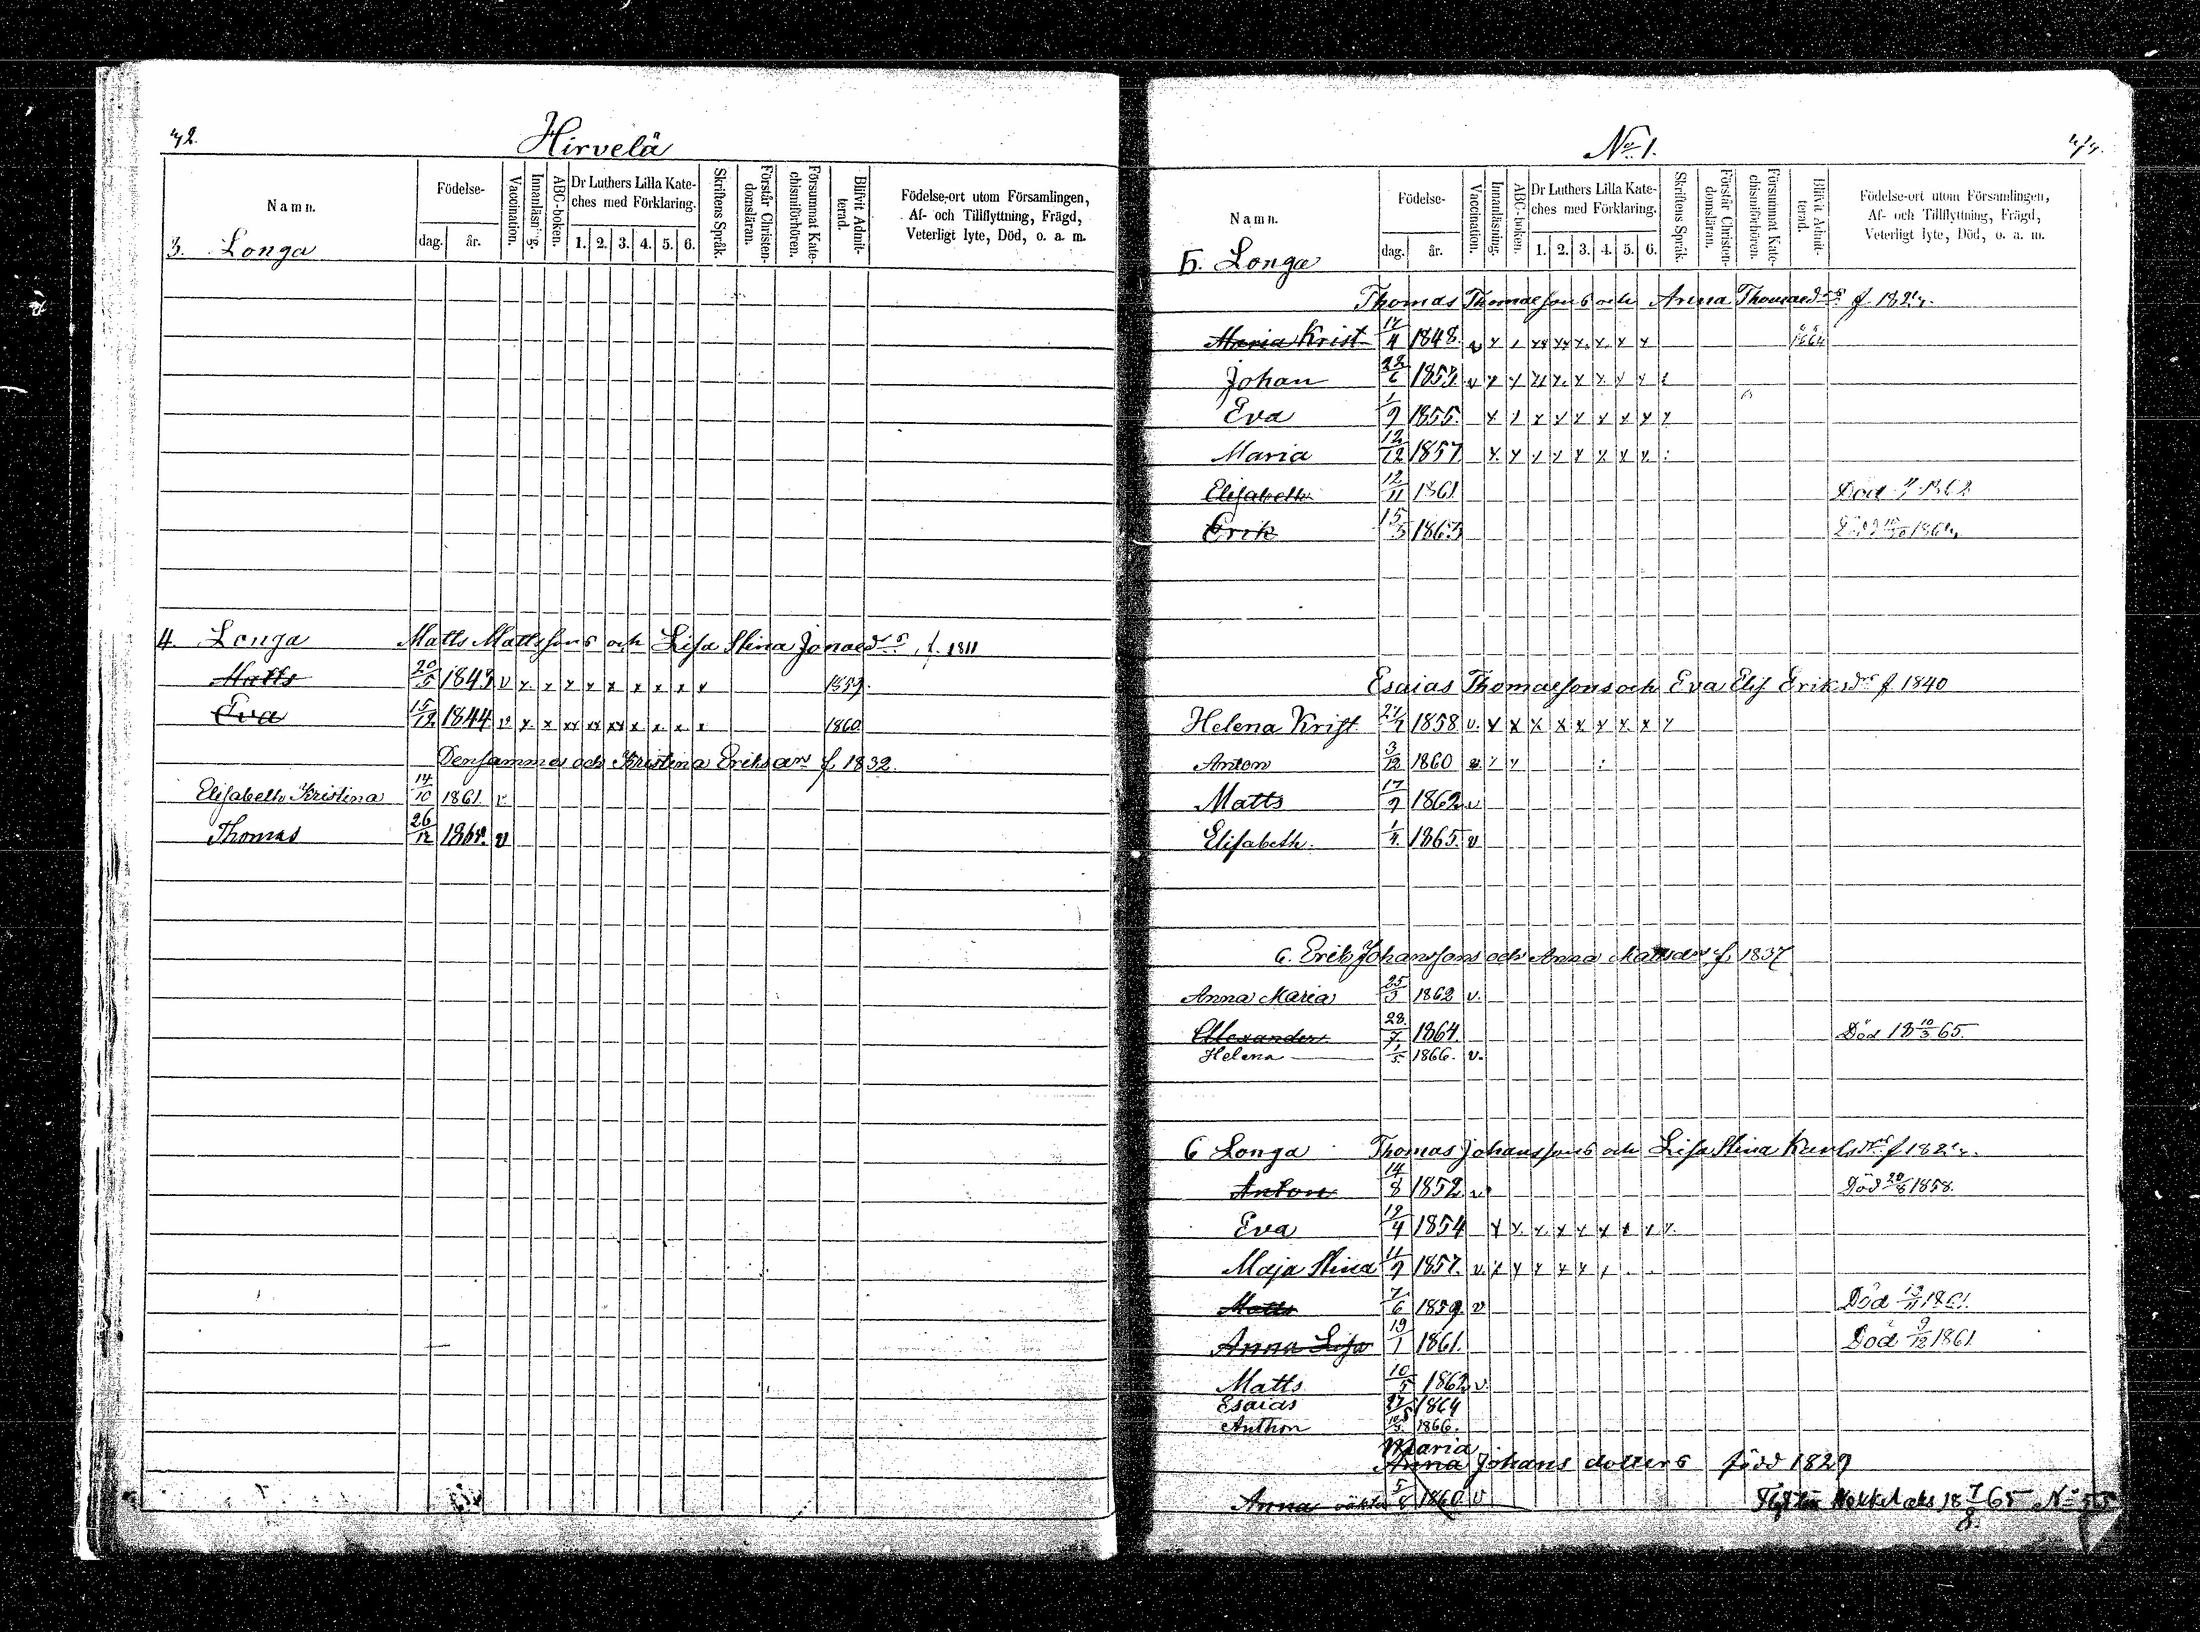 42.
Hirvelä
Namn.
Födelse-
dag. år.
Vaccination.
Innanläsning.
ABC-boken.
Dr Luthers Lilla Kate-
ches med Förklaring.
1. 2. 3. 4. 5. 6.
Skriftens Språk.
Förstår Christen-
domsläran.
Försummat Kate-
chismiförhören.
Blifvit Admit-
terad.
Födelse-ort utom Församlingen,
Af- och Tillflyttning, Frägd,
Veterligt lyte, Död, o. a. m.
3. Longa
4. Longa Matts Mattssons och Lisa Stina Jonaedrs f. 1811
Matts 20/5 1843 v x x x x x x x x x 1859.
Eva 15/12 1844 v x x xx xx xx x x x x 1860
Densammes och Kristina Eriksdrs f. 1832.
Elisabeth Kristina 14/10 1861. v
Thomas 26/12 v
No 1.
Namn.
Födelse-
dag. år.
Vaccination.
Innanläsning.
ABC-boken.
Dr Luthers Lilla Kate-
ches med Förklaring.
1. 2. 3. 4. 5. 6.
Skriftens Språk.
Förstår Christen-
domsläran.
Försummat Kate-
chismiförhören.
Blifvit Admit-
terad.
Födelse-ort utom Församlingen,
Af- och Tillflyttning, Frägd,
Veterligt lyte, Död, o. a. m.
5. Longa
Thomas Thomaessons och Anna Thomaedrs f.
Maria Krist 1848. v x x xx xx x x x x 1864
Johan 1853 v x x xx x x x x x
Eva 1/9 1855. x x x x x x x x x
Maria 12/12 1857 x x x x x x x x
Elisabeth 12/11 1861 Död 1862
Erik 15/3 1863 Död 1864
Esaias Thomaessons och Eva Elis Eriksdrs f 1840
Helena Krist. 1858 v. x x x x x x x x x
Anton 3/12 1860 v x x
Matts 17/9 1862 v
Elisabeth. 1/4 1865. v
6. Erik Johanssons och Anna Mattsdrs f. 1837
Anna Maria 25/3 1862 v.
Allexander 28/7 1864. Död 18 10/3 65.
Helena 1/5 1866. v.
6 Longa Thomas Johanssons och Lisa Stina Karlsdrs f
Anton 14/8 1852 v Död 20/8 1858.
Eva 1854 x x x x x x x x x
Maja Stina 11/9 1857. v x x x x x
Matts 7/6 1859 v Död 13/11 1861.
Anna Lisa 19/1 1861. Död 9/12 1861
Matts 10/5 1862 v.
Esaias 1864
Anthon 1866.
Maria
Anna Johans dotters född 1829
Anna oäkta 5/8 1860 v 18 7/8 65 No 55